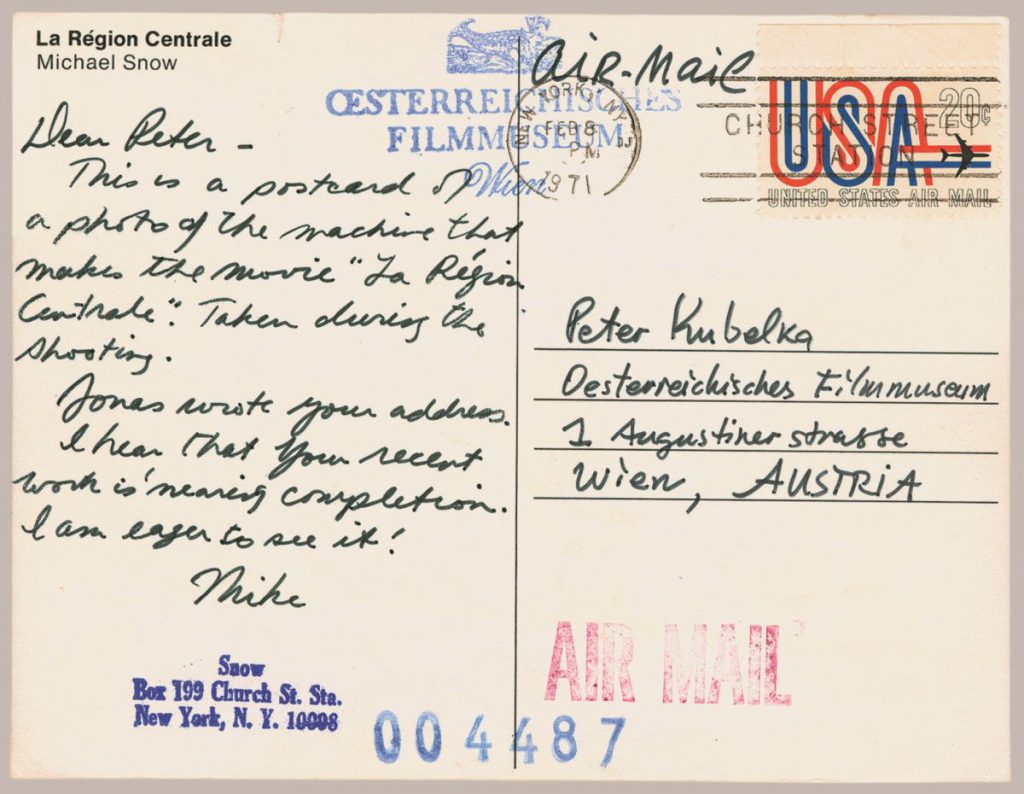 La Région Centrale
Michael Snow
Dear Peter –
This is a postcard of
a photo of the machine that
makes the movie "La Région
Centrale". Taken during the
shooting.
Jonas wrote your address.
I hear that your recent
work is nearing completion.
I am eager to see it!
Mike
Snow
Box 199 Church St. Sta.
New York, N. Y. 10008
004487
ŒSTERREICHISCHES
FILMMUSEUM
Wien
AIR-MAIL
NEW YORK, NY
FEB 8
PM
1971
CHURCH STREET
STATION
USA
20c
UNITED STATES AIR MAIL
Peter Kubelka
Oesterreichisches Filmmuseum
1 Augustiner strasse
Wien, AUSTRIA
AIR MAIL